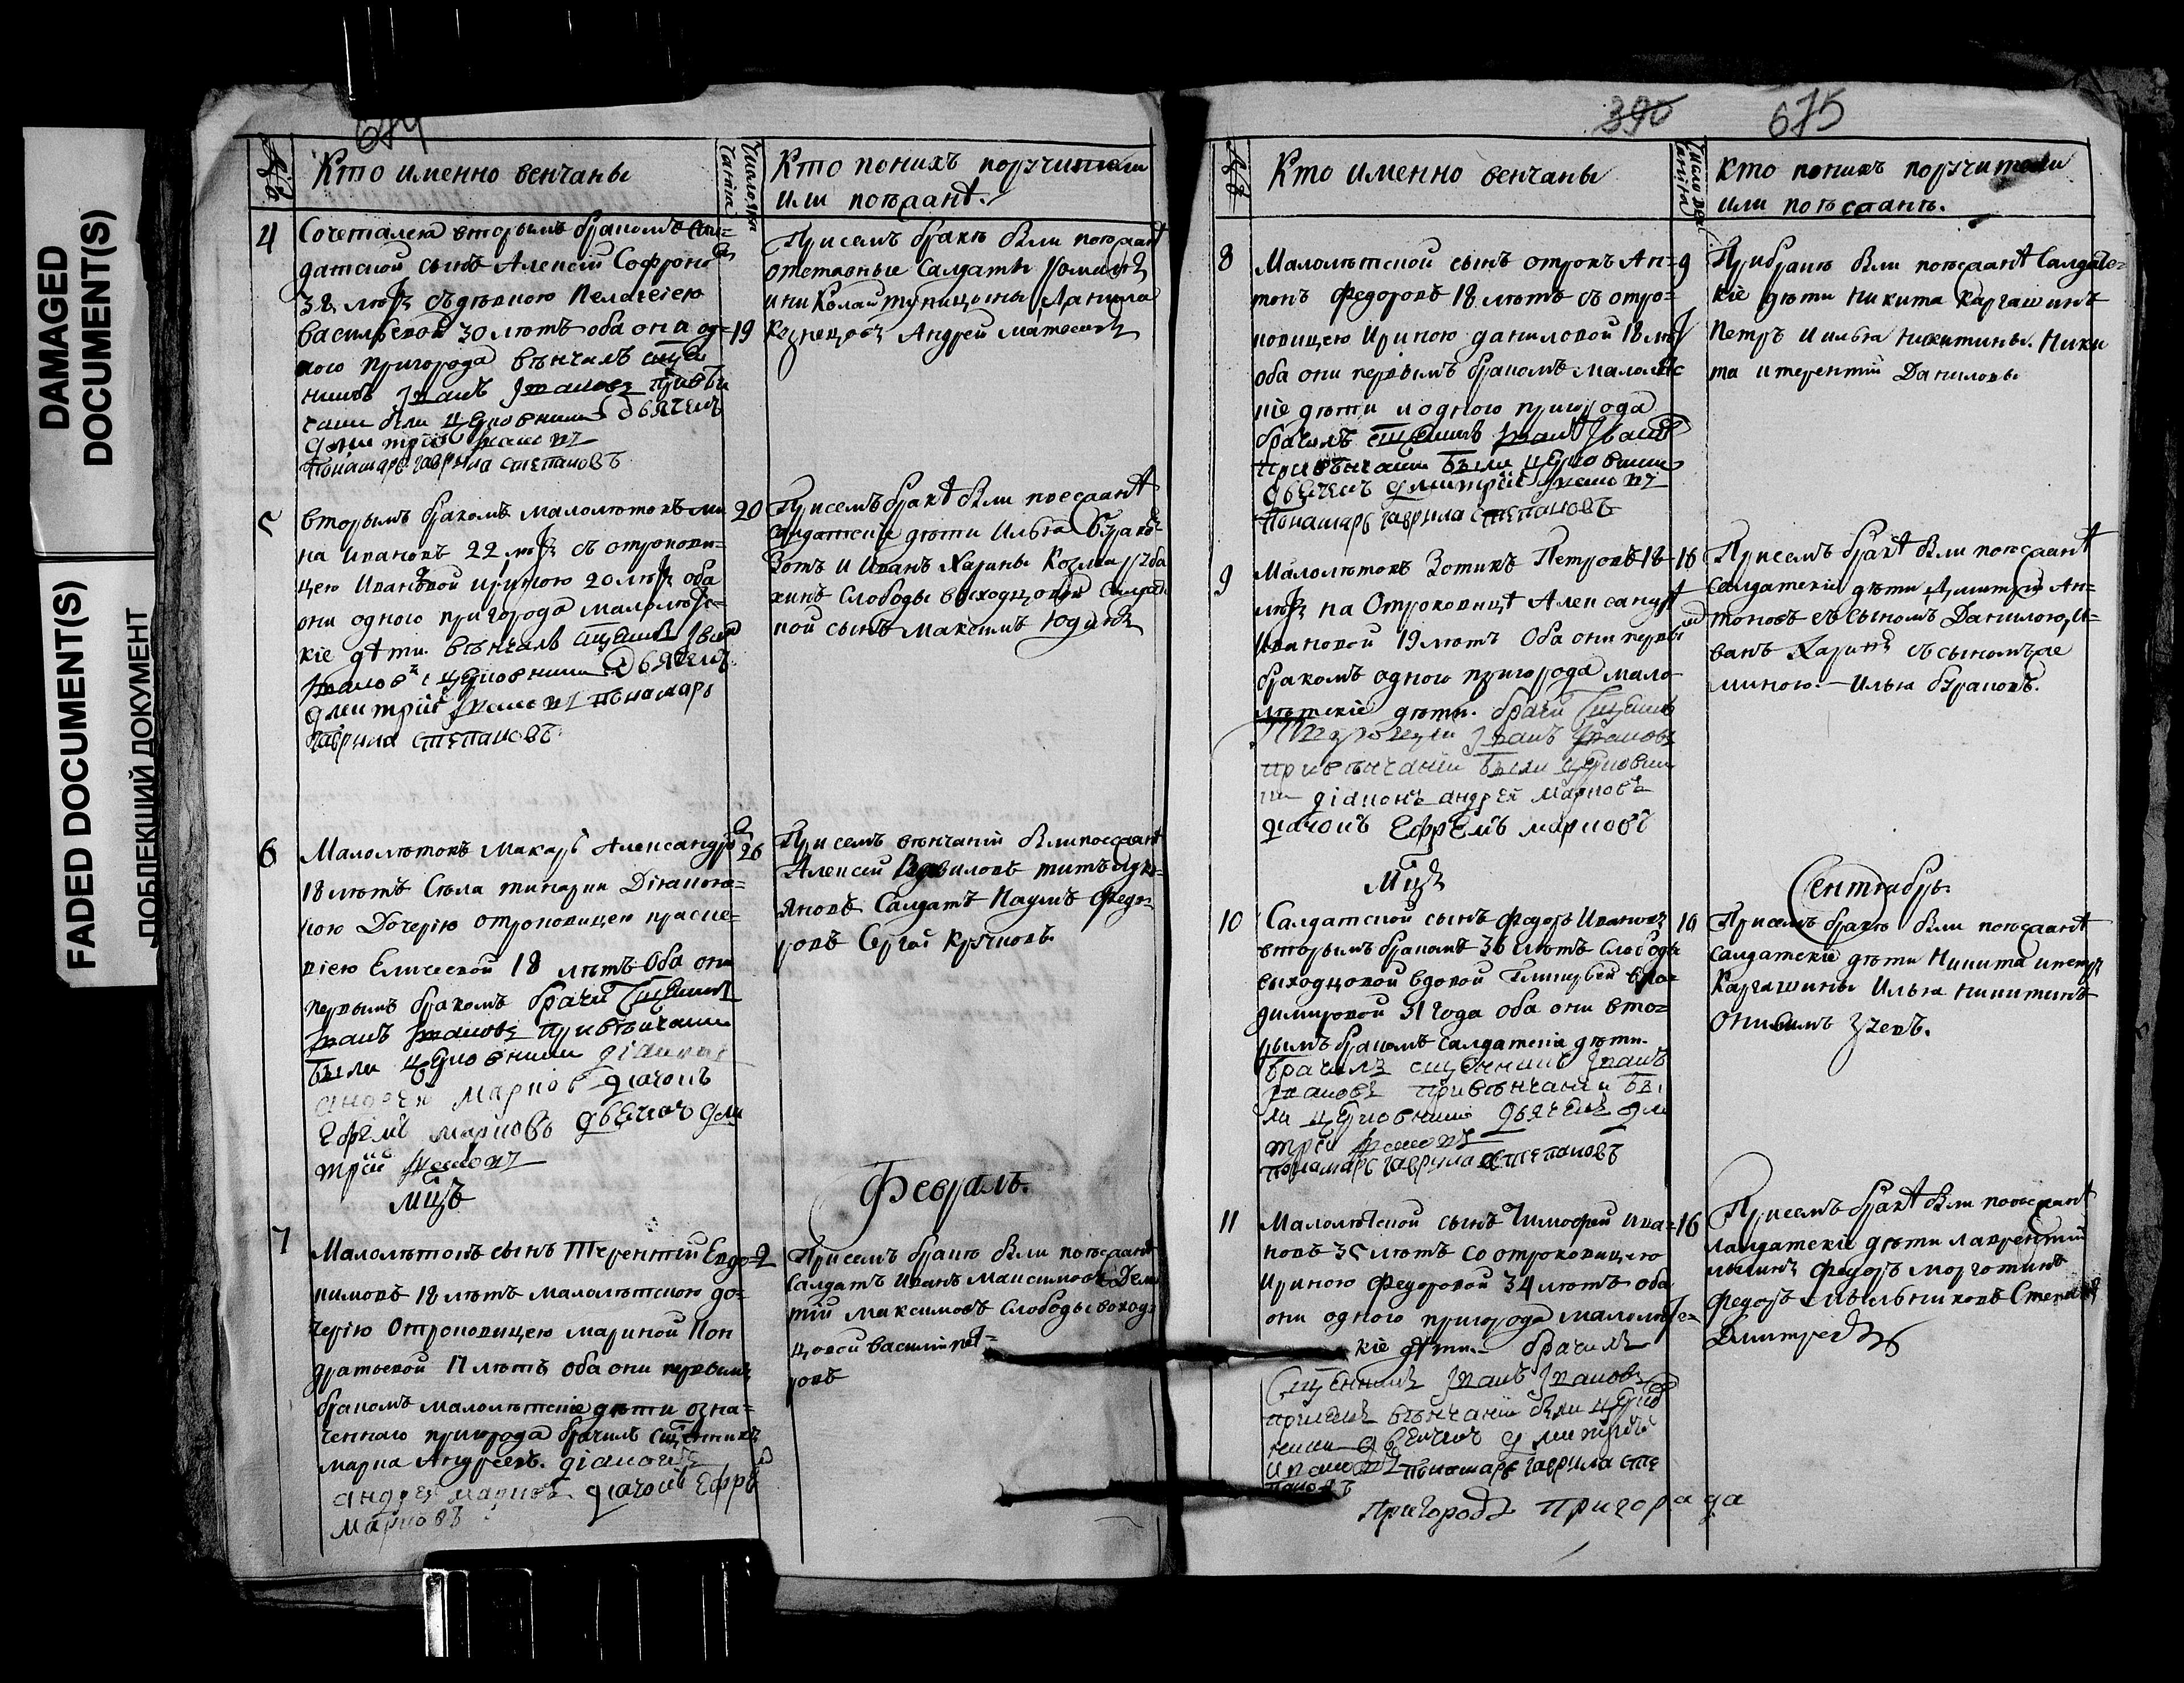 DAMAGED
DOCUMENT(S)
FADED DOCUMENT(S)
ПОБЛЕКШИЙ ДОКУМЕНТ
674
№
Кто именно венчаны
Число венчания
Кто понихъ поручители
или поѣзжанѣ.
4
Сочетался вторымъ бракомъ Сал=
датской сынъ Алексѣй Софроно
38 лѣтъ съ дѣвкою Пелагеiею
васильевой 30 лѣтъ оба они од=
ного пригорода вѣнчалъ сщен
никъ Iванъ Iвановъ привѣн
чаніи были церковники дьячекъ
дмитрiй Iвановъ
Понамарь гаврила степановъ
19
Присемъ бракѣ были поѣзжанѣ
отставные Салдаты
и николай Данила
Кузнецовъ Андрей Матвеевъ
5
вторымъ бракомъ малолѣтокъ
на ивановъ 22 лѣтъ съ отрокови=
цею Ивановой ириною 20 лѣтъ оба
они одного пригорода малолѣтс=
кiе дѣти. вѣнчалъ сщенникъ Iван
Iвановъ церковники Дьячекъ
дмитрiй Iвановъ понамарь
гаврила степановъ
20
Присемъ бракѣ были поезжанѣ
салдатскiе дѣти Илья Бураковъ
Зотъ и Иванъ Харины Козма
Слободы выходцовой Салдат
кой сынъ Максимъ Юдинъ
6
Малолѣтокъ Макаръ Александро
18 лѣтъ Села Дiаконов=
кою Дочерiю отроковицею
Елисеевой 18 лѣтъ Оба они
первымъ бракомъ брачи сщенникъ
Iванъ Iвановъ привѣнчании
были церковники дiаконъ
андрей марковъ дiачокъ
Ефремъ марковъ дьячекъ дми
трiй Iвановъ
26
Присемъ вѣнчанiй были поезжанѣ
Алексѣй
яновъ Салдатъ Наумъ Федо=
ровъ Сергѣй Крючковъ.
мцъ
Февраль.
7
Малолѣтокъ сынъ Терентiй Евдо=
кимовъ 18 лѣтъ малолѣтскою до=
черiю Отроковицею Мариной Кон
дратьевой 17 лѣтъ оба они первымъ
бракомъ малолѣтскiе дѣти озна=
ченнаго пригорода брачилъ сщенникъ
марка Андреевъ. дiаконъ
андрей марковъ дiачокъ Ефре
марковъ
2
Присемъ бракѣ были поѣзжанѣ
Салдатъ Иванъ Максимовъ Деме
тiй максимовъ Слободы выход=
цовой василiй пет=
ровъ
390
675
№
Кто именно венчаны
Число венчания
Кто понихъ поручители
или поѣзжанъ.
8
Малолѣтской сынъ отрокъ Ан=
тонъ Федоровъ 18 лѣтъ съ отро=
ковицею Ириною даниловой 18 лѣт
оба они первымъ бракомъ малолѣтс
кiе дѣти и одного пригорода
брачилъ сщенникъ Iванъ Iванов
привѣнчании были церковники
дьячекъ дмитрiй Iвановъ
Понамарь гаврила степановъ
9
Прибракѣ были поѣзжанѣ Салдатс=
кiе дѣти Никита Каргашинъ
Петръ и илья Никитины. Ники
та и терентiй Даниловы
9
Малолѣтокъ Зотикъ Петровъ 18
лѣтъ на Отроковицѣ Александрѣ
Ивановой 19 лѣтъ Оба они первы
бракомъ одного пригорода мало
лѣтскiе дѣти. брачи сщенникъ
Iванъ Iвановъ
привѣнчанiи были церковни
ки дiаконъ андрей марковъ
дiачокъ Ефремъ марковъ
16
Присемъ бракѣ были поѣзжанѣ
салдатскiе дѣти Дмитрiй Ан=
тоновъ съ Сыномъ Даниломъ, и=
ванъ Харинъ съ сыномъ
Илья бураковъ.
Мцъ
Сентябрь.
10
Салдатской сынъ Федоръ Ивановъ
вторымъ бракомъ 36 лѣтъ Слободы
выходцовой вдовой Гликерьей вла=
димировой 31 года оба они вто=
рымъ бракомъ салдатскiе дѣти.
брачилъ сщенникъ Iванъ
Iвановъ привѣнчании бы
ли церковники дьячекъ дми
трiй Iвановъ
понамарь гаврила степановъ
10
Присемъ бракѣ были поѣзжанѣ
салдатскiе дѣти Никита и петръ
Каргашины Илья никитинъ
Онисимъ
11
Малолѣтской сынъ Тимофей ива=
новъ 35 лѣтъ со отроковицею
Ириною Федоровой 34 лѣтъ оба
они одного пригорода малолѣтс=
кiе дѣти брачилъ
сщенникъ Iванъ Iвановъ
присемъ вѣнчании были церков
ники дьячекъ дмитрiй
Ивановъ понамарь гаврила сте
пановъ
16
Присемъ бракѣ были поѣзжанѣ
салдатскiе дѣти лаврентiй
Федоръ
Федоръ мельниковъ Степанъ
Дмитревъ
Пригородъ пригорада